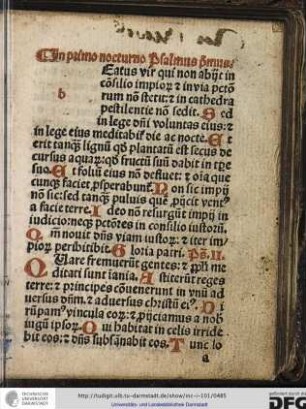 In primo nocturno Psalmus primus.
b
Eatus vir qui non abijt in
cōsilio impioꝝ ⁊ in via pctō
rum nō stetit: ⁊ in cathedra
pestilentie nō sedit. Sed
in lege dn̄i voluntas eius: ⁊
in lege eius meditabit̉ die ac nocte. Et
erit tanqꝫ lignū qd̓ plantatū est secus de
cursus aquaꝝ: qd̓ fructū suū dabit in tp̄e
suo. Et foliū eius nō defluet: ⁊ oīa que
cunqꝫ faciet, ꝓsperabunt̉. Non sic impij
nō sic: sed tanqꝫ puluis quē ꝓijcit vent᷒
a facie terre. Ideo nō resurgūt impij in
iudicio: neqꝫ pctōres in consilio iustoꝝ.
Qm̄ nouit dn̄s viam iustoꝝ: ⁊ iter im/
pioꝝ peribit. Gloria patri. Ps̄. II.
Quare fremuerūt gentes: ⁊ ppl̄i me
ditati sunt inania. Astiterūt reges
terre: ⁊ principes cōuenerunt in vnū ad
uersus dn̄m. ⁊ aduersus christū ei᷒. Di
rūpam᷒ vincula eoꝝ: ⁊ ꝓijciamus a nob
iugū ipsoꝝ. Qui habitat in celis irride
bit eos: ⁊ dn̄s subsānabit eos. Tunc lo
a
TECHNISCHE
UNIVERSITÄT
DARMSTADT
http://tudigit.ulb.tu-darmstadt.de/show/inc-i-101/0485
Universitäts- und Landesbibliothek Darmstadt
DFG